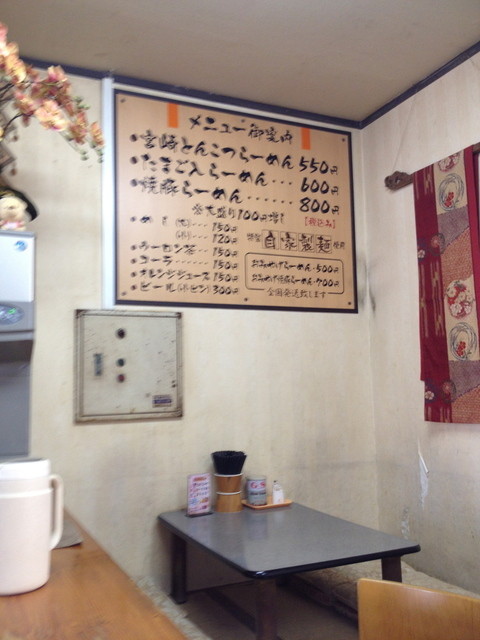 メニュー御案内
・宮崎とんこつらーめん 550円
・たまご入らーめん・・・・ 600円
・焼豚らーめん・・・・・・ 800円
※大盛り100円増し 【税込み】
・めし(大)・・・・150円
(小)・・・・120円
・ウーロン茶・・・・150円
・コーラ・・・・・150円
・オレンジジュース・150円
・ビール(小ビン)300円
特製 自家製麺 使用
おみやげらーめん・500円
おみやげ焼豚らーめん・700円
全国発送致します